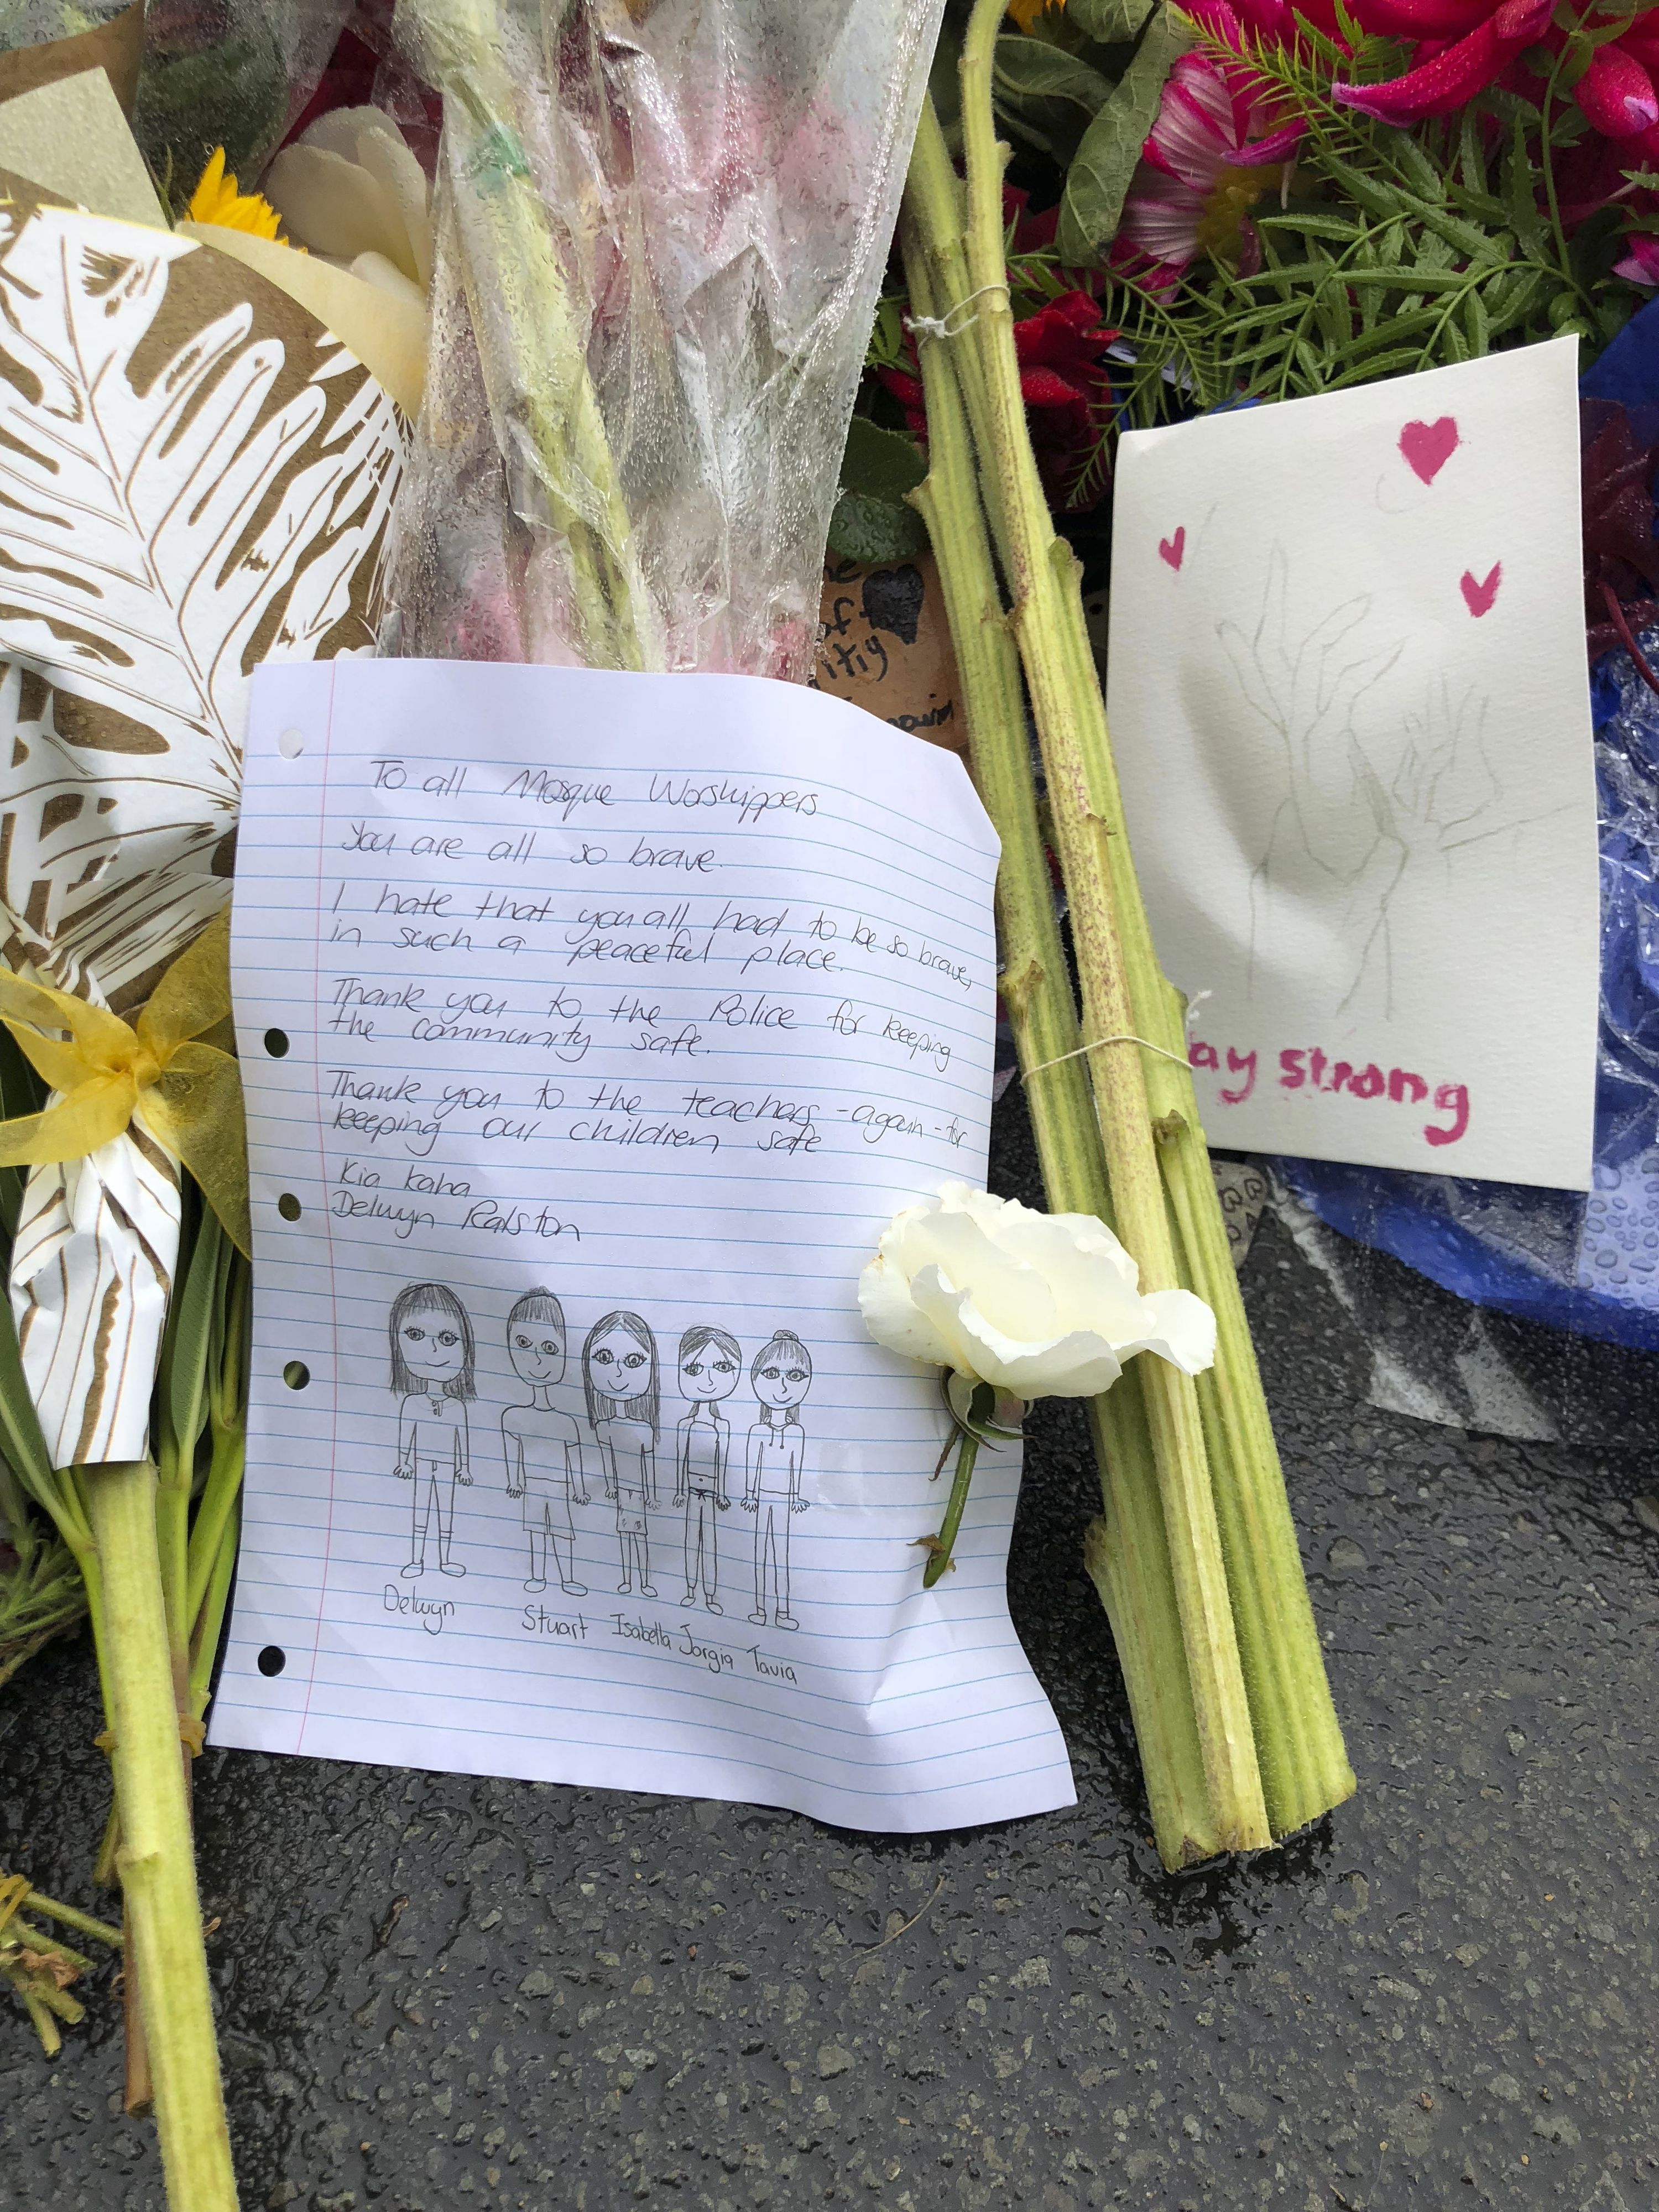 To all Mosque Worshippers
You are all so brave.
I hate that you all had to be so brave,
in such a peaceful place.
Thank you to the Police for keeping
the community safe.
Thank you to the teachers - again - for
keeping our children safe
Kia kaha
Delwyn Ralston
Delwyn Stuart Isabella Jorgia Tavia
ay strong